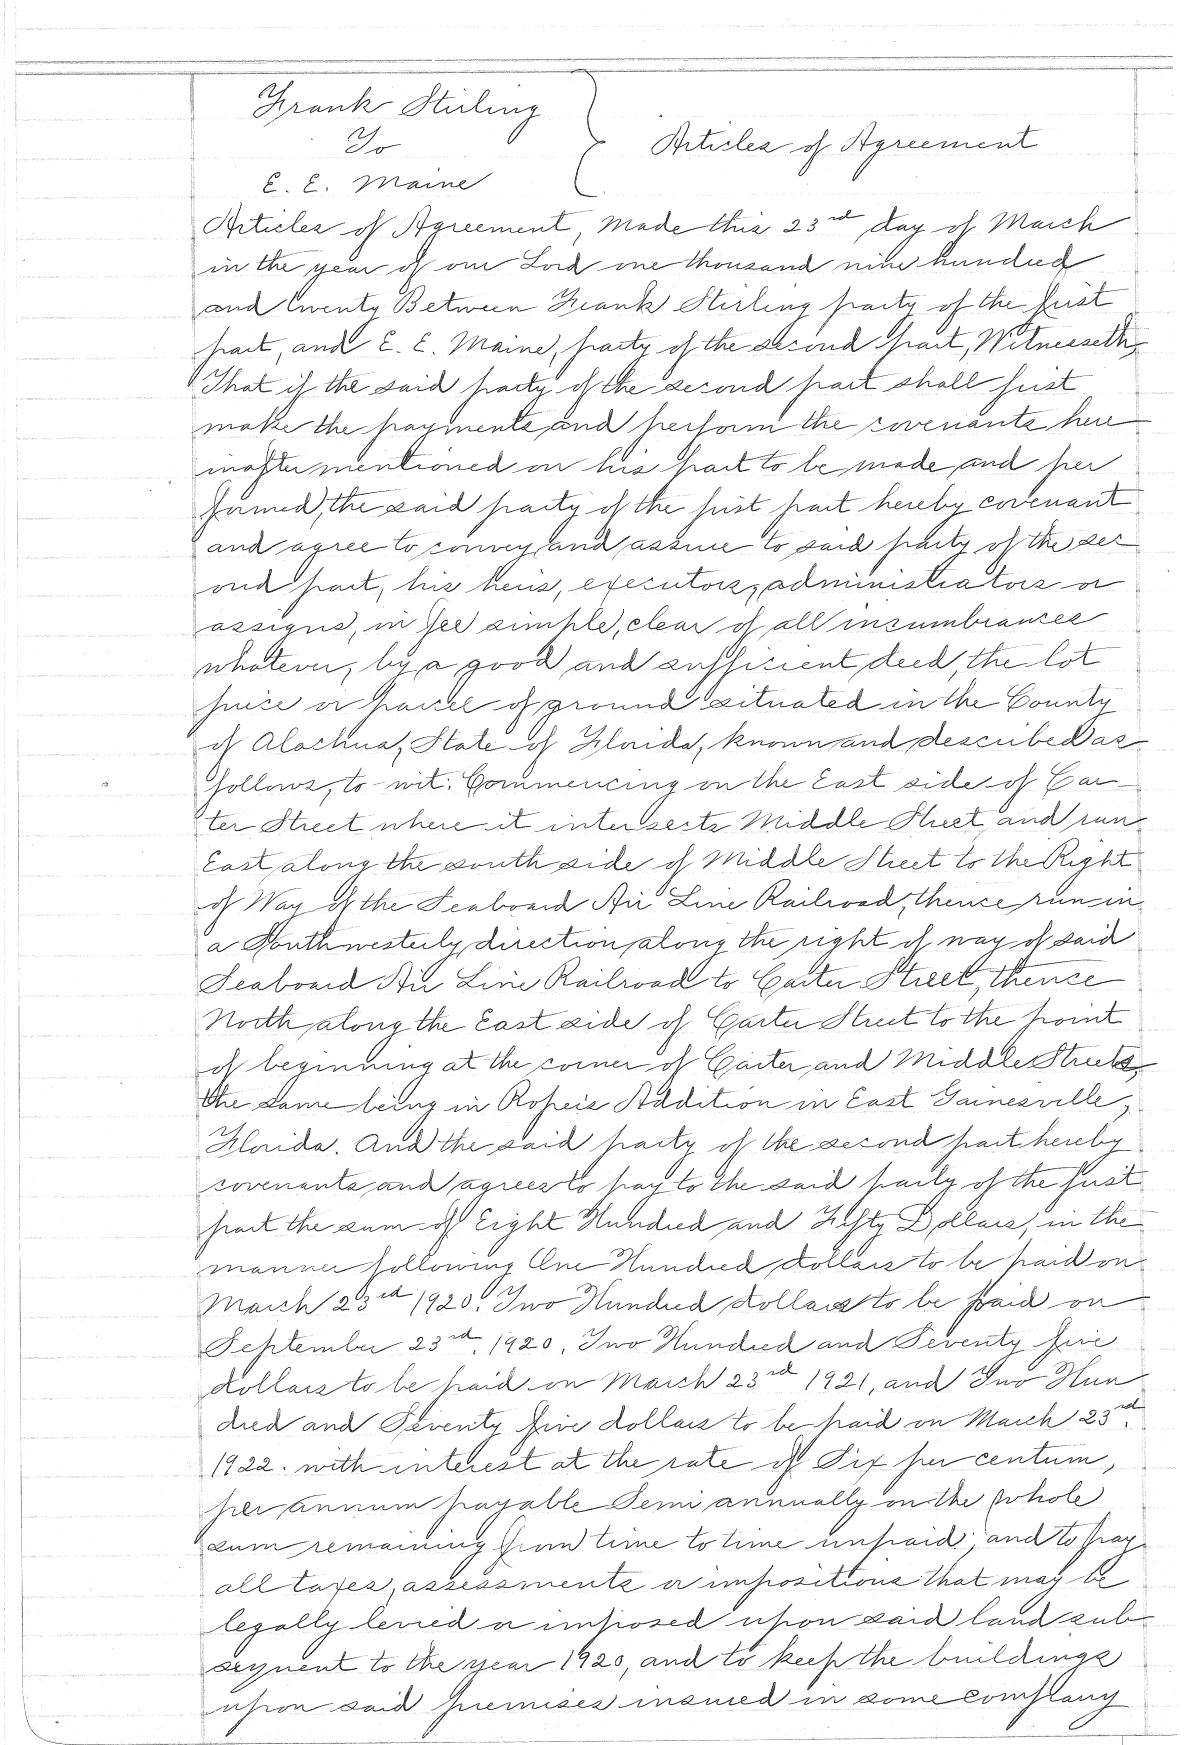 Frank Stirling
To
E. E. Maine
Articles of Agreement
Articles of Agreement, Made this 23rd day of March
in the year of our Lord one thousand nine hundred
and twenty Between Frank Stirling party of the first
part, and E. E. Maine, party of the second part, Witnesseth,
That if the said party of the second part shall first
make the payments and perform the covenants here
inafter mentioned on his part to be made and per
formed, the said party of the first part hereby covenant
and agree to convey and assure to said party of the sec
ond part, his heirs, executors, administrators or
assigns, in fee simple, clear of all incumbrances
whatever, by a good and sufficient deed, the lot
peice or parcel of ground situated in the County
of Alachua, State of Florida, known and described as
follows, to-wit: Commencing on the East side of Car
ter Street where it intersects Middle Street and run
East along the south side of Middle Street to the Right
of Way of the Seaboard Air Line Railroad, thence run in
a Southwesterly direction along the right of way of said
Seaboard Air Line Railroad to Carter Street, thence
North along the East side of Carter Street to the point
of beginning at the corner of Carter and Middle Streets,
the same being in Roper's Addition in East Gainesville,
Florida. And the said party of the second part hereby
covenants and agrees to pay to the said party of the first
part the sum of Eight Hundred and Fifty Dollars, in the
manner following One Hundred dollars to be paid on
March 23rd 1920. Two Hundred dollars to be paid on
September 23rd, 1920, Two Hundred and Seventy five
dollars to be paid on March 23rd 1921, and Two Hun
dred and Seventy five dollars to be paid on March 23rd.
1922. with interest at the rate of Six per centum,
per annum payable Semi annually on the whole
sum remaining from time to time unpaid; and to pay
all taxes, assessments or impositions that may be
legally levied or imposed upon said land sub
sequent to the year 1920, and to keep the buildings
upon said premises insured in some company